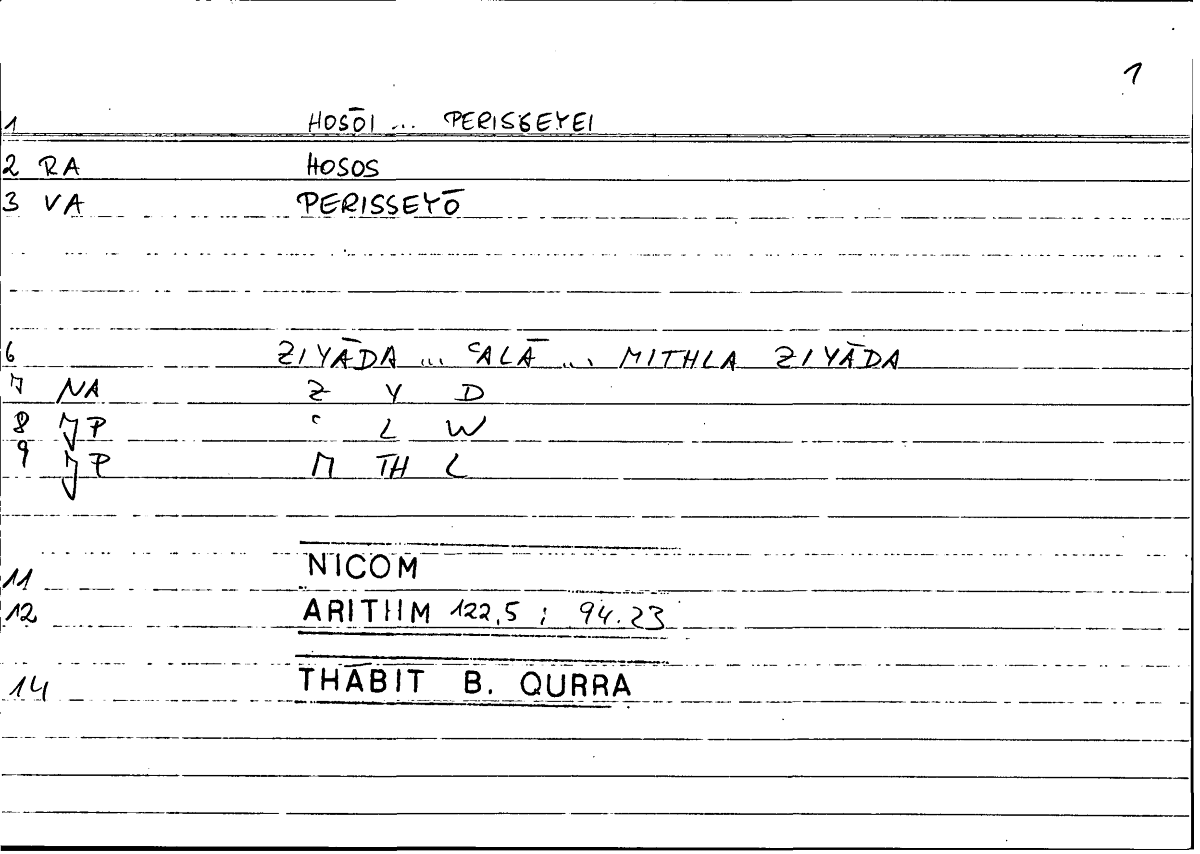 1
1 HOSŌI ... PERISSEYEI
2 RA HOSOS
3 VA PERISSEYŌ
6 ZIYĀDA ... ʿALĀ ... MITHLA ZIYĀDA
7 NA Z Y D
8 JP ʿ L W
9 JP M TH L
11 NICOM
12 ARITHM 122,5 ; 94.23
14 THĀBIT B. QURRA